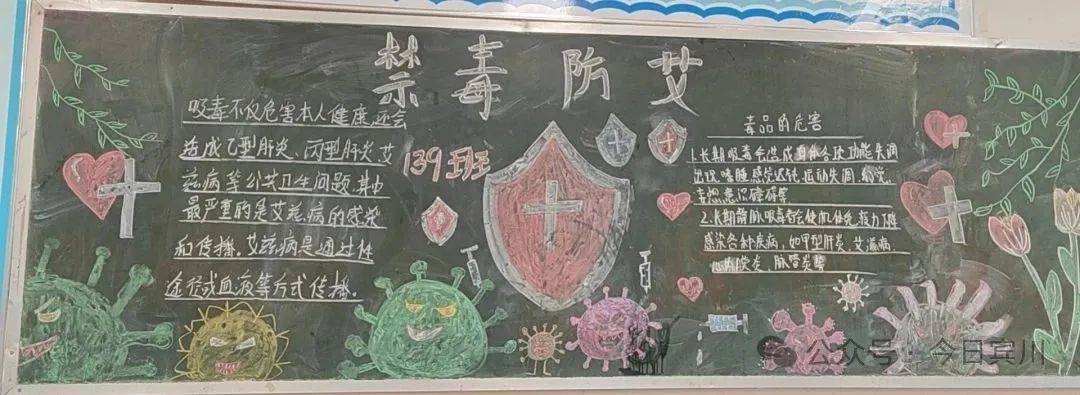 禁毒防艾
吸毒不仅危害本人健康还会
造成乙型肝炎、丙型肝炎、艾
滋病等公共卫生问题,其中
最严重的是艾滋病的感染
和传播。艾滋病是通过性
途径或血液等方式传播。
139班
毒品的危害
1.长期吸毒会造成身体各项功能失调
出现嗜睡感觉迟钝、运动失调、幻觉、
妄想、意识障碍等
2.长期静脉吸毒会使机体免疫力下降
感染各种疾病,如甲型肝炎、艾滋病、
心内膜炎、脉管炎等
公众号·今日宾川